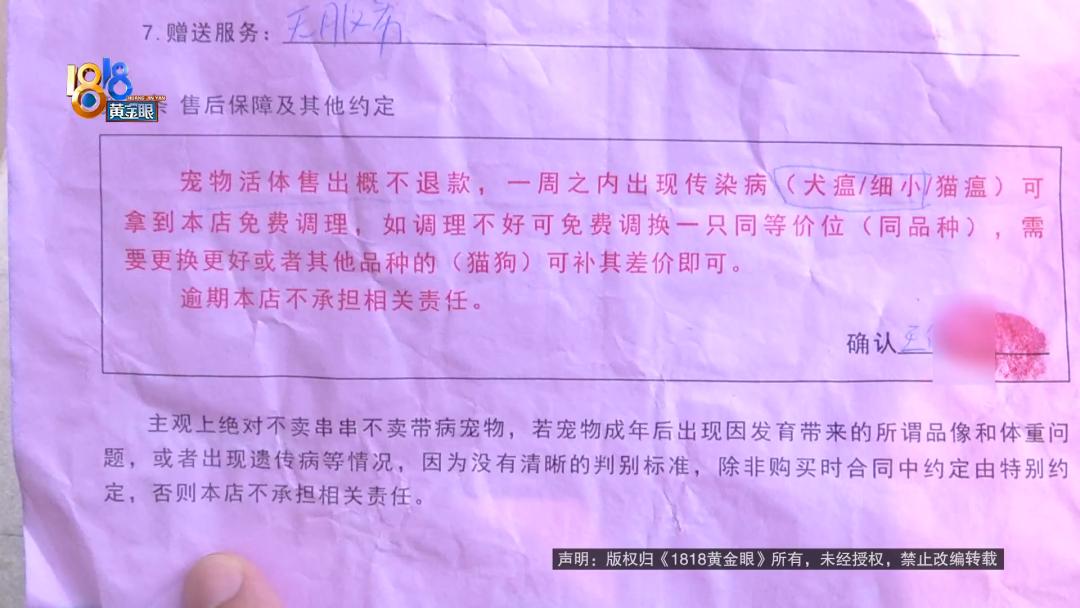 7.赠送服务：无服务
1818
HUANG JIN YAN
黄金眼
售后保障及其他约定
宠物活体售出概不退款，一周之内出现传染病（犬瘟/细小/猫瘟）可
拿到本店免费调理，如调理不好可免费调换一只同等价位（同品种），需
要更换更好或者其他品种的（猫狗）可补其差价即可。
逾期本店不承担相关责任。
确认
主观上绝对不卖串串不卖带病宠物，若宠物成年后出现因发育带来的所谓品像和体重问
题，或者出现遗传病等情况，因为没有清晰的判别标准，除非购买时合同中约定由特别约
定，否则本店不承担相关责任。
声明：版权归《1818黄金眼》所有，未经授权，禁止改编转载